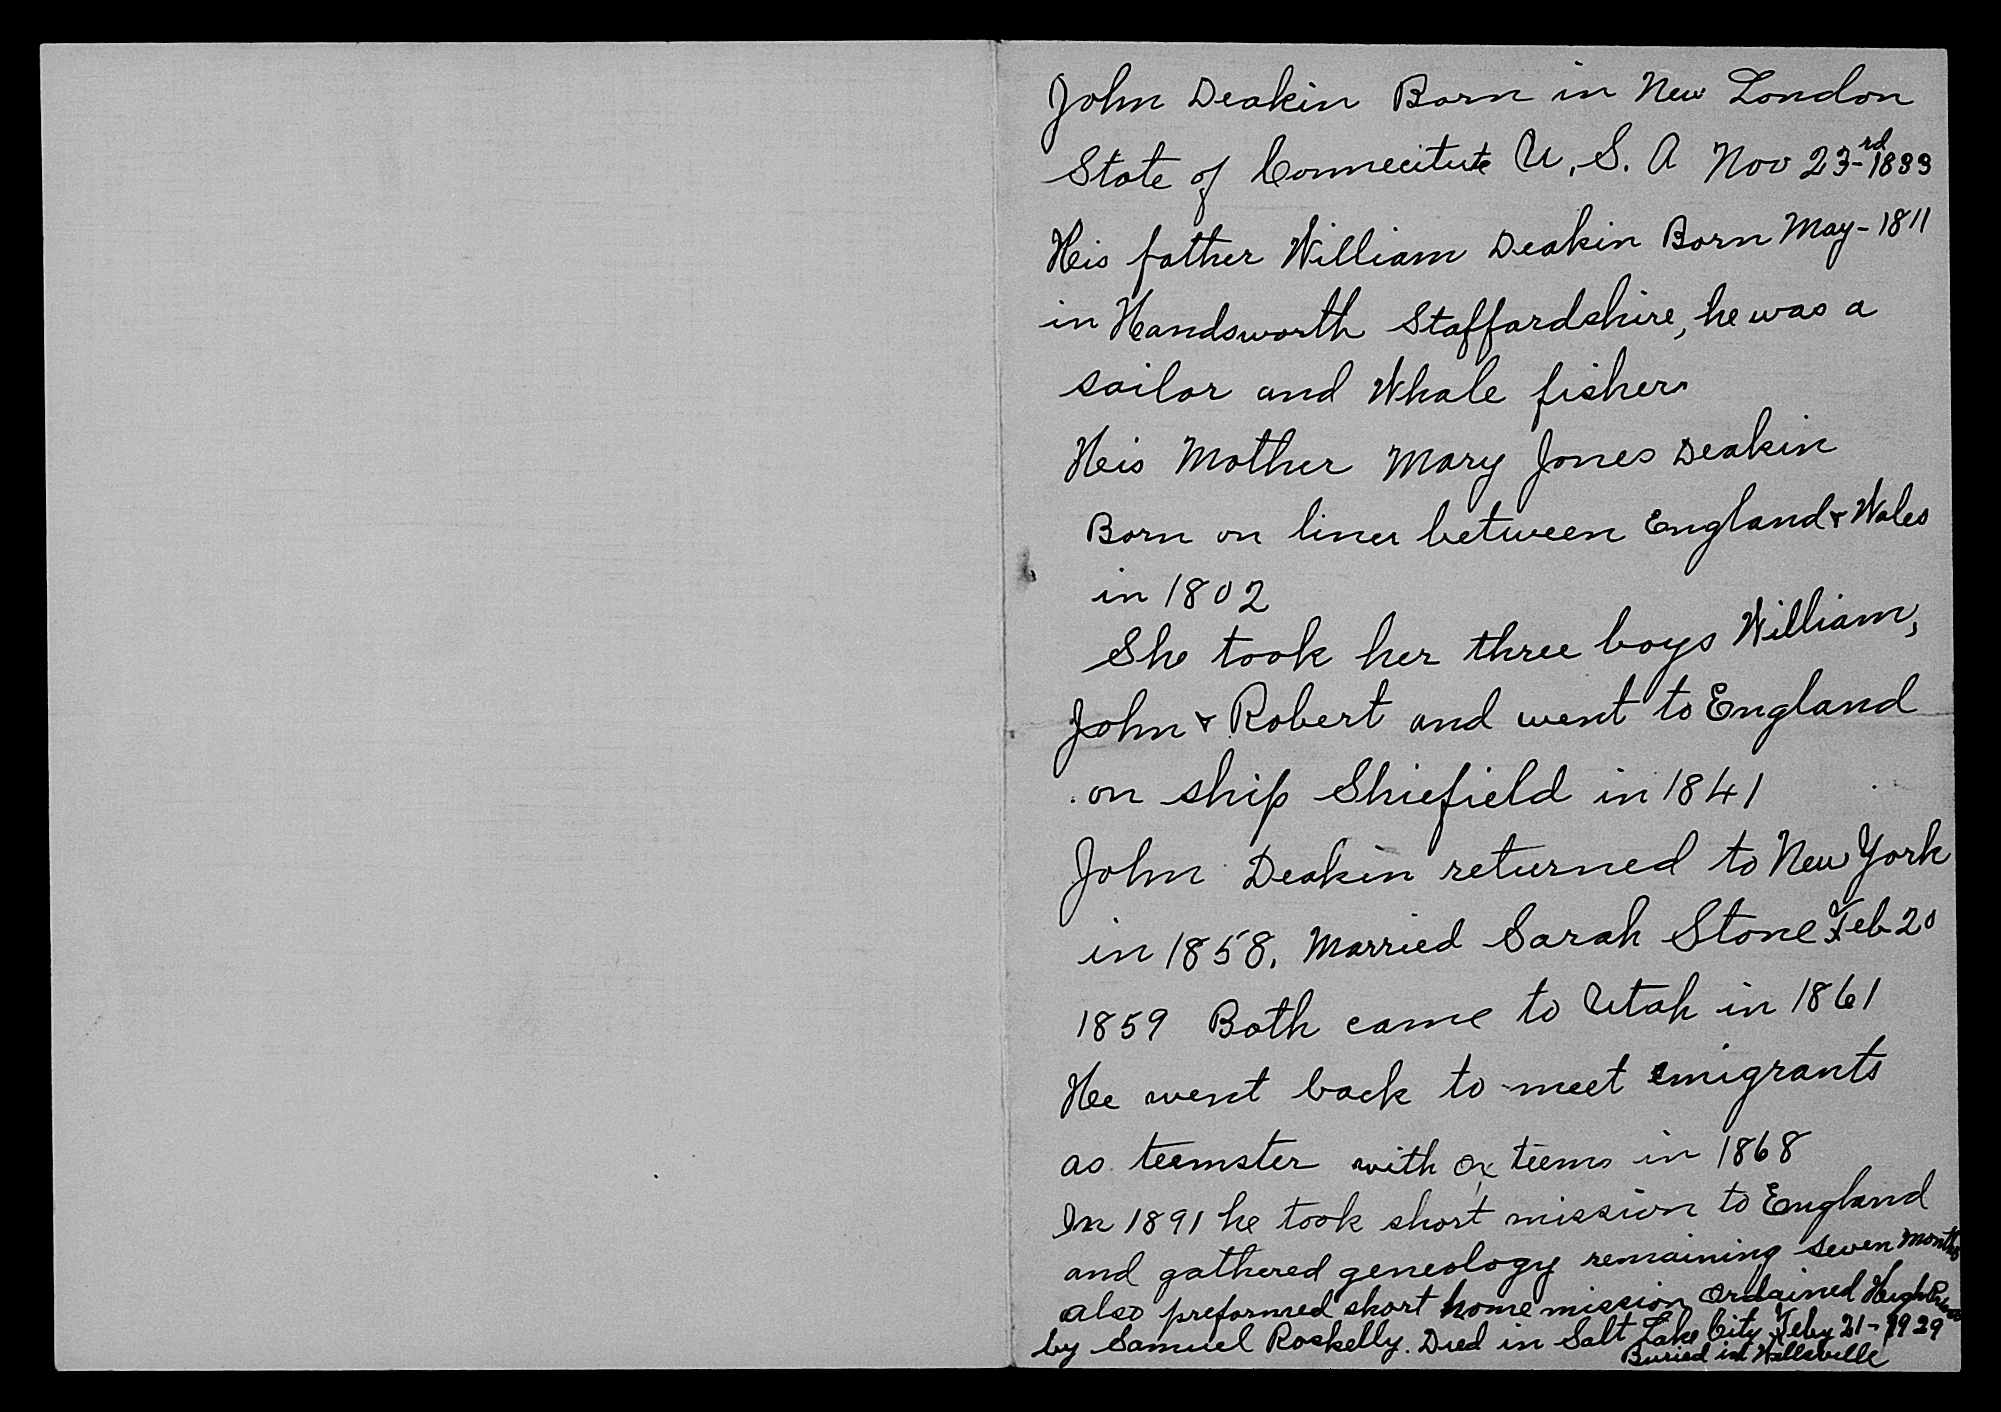 John Deakin Born in New London
State of Connecitute U.S.A Nov 23-rd 1833
His father William Deakin Born May-1811
in Handsworth Staffordshire, he was a
sailor and Whale fisher
His Mother Mary Jones Deakin
Born on line between England & Wales
in 1802
She took her three boys William,
John & Robert and went to England
on ship Shiefield in 1841
John Deakin returned to New York
in 1858. Married Sarah Stone Feb 20
1859 Both came to Utah in 1861
He went back to meet emigrants
as teemster with ox teems in 1868
In 1891 he took short mission to England
and gathered geneology remaining seven months
also preformed short home mission Ordained High Priest
by Samuel Roskelly. Died in Salt Lake City Feby 21-1929
Buried in Wellsville